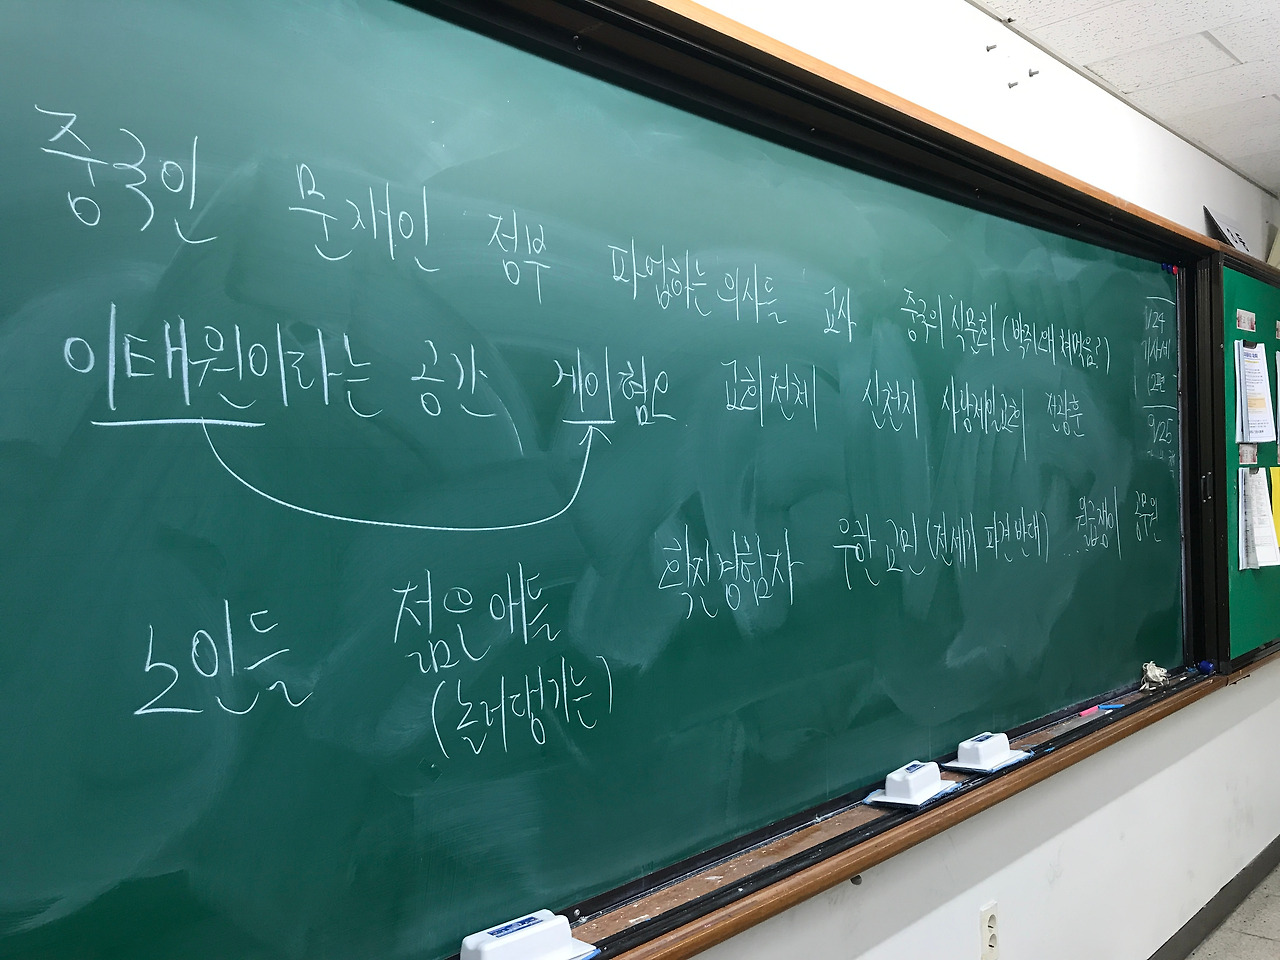 중국인 문재인 정부 파업하는 의사들 교사 중국의 식문화 (박쥐 왜 쳐먹음?)
이태원이라는 공간 게이혐오 교회 전체 신천지 사랑제일교회 전광훈
노인들 젊은 애들 확진경험자 우한 교민 (전세기 파견 반대) 월급쟁이 공무원
(놀러댕기는)
9/25